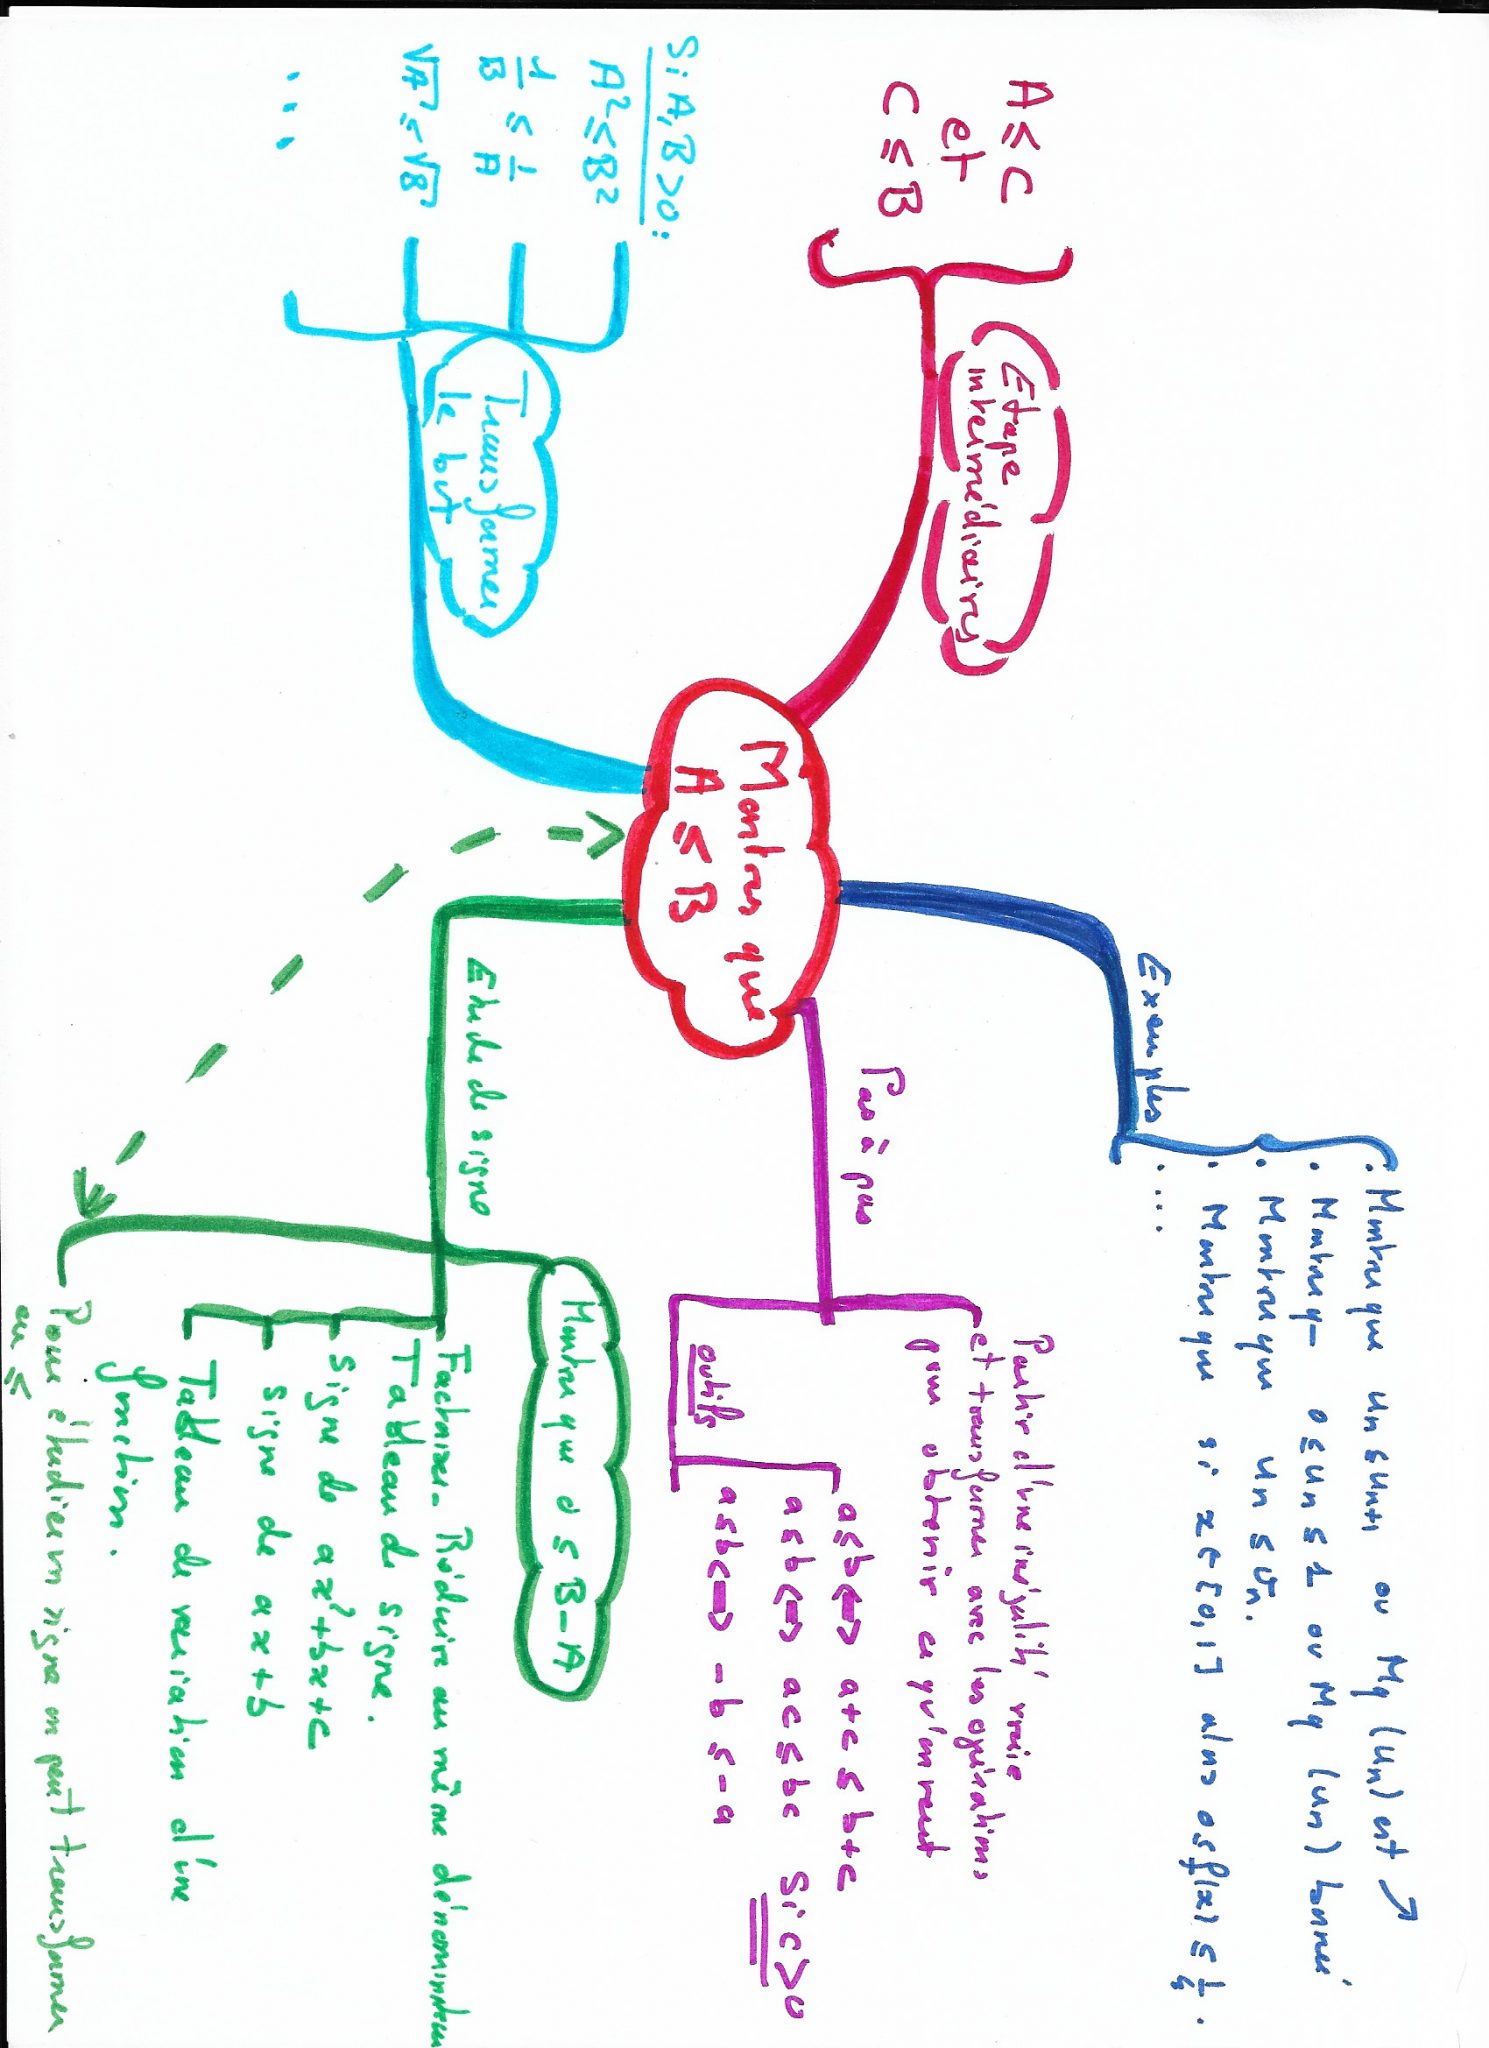 Montrer que
A ≤ B
Etape
intermédiaires
A ≤ C
et
C ≤ B
Transformer
le but
Si A, B > 0 :
A² ≤ B²
1/B ≤ 1/A
√A ≤ √B
...
Exemples
. Montrer que un ≤ un+1 ou Mq (un) est ↗
. Montrer q- 0 ≤ un ≤ 1 ou Mq (un) bornée
. Montrer que un ≤ vn.
. Montrer que si x ∈ [0,1] alors 0 ≤ f(x) ≤ 1/4.
. ...
Pas à pas
Partir d'une inégalité vraie
et transformer avec les opérations
pour obtenir ce qu'on veut
outils
a ≤ b <=> a+c ≤ b+c
a ≤ b <=> ac ≤ bc Si c > 0
a ≤ b <=> -b ≤ -a
Etude de signe
Montrer que 0 ≤ B-A
Factoriser - Réduire au même dénominateur
Tableau de signe.
Signe de ax²+bx+c
Signe de ax+b
Tableau de variation d'une
fonction.
Pour étudier un signe on peut transformer
en ≤